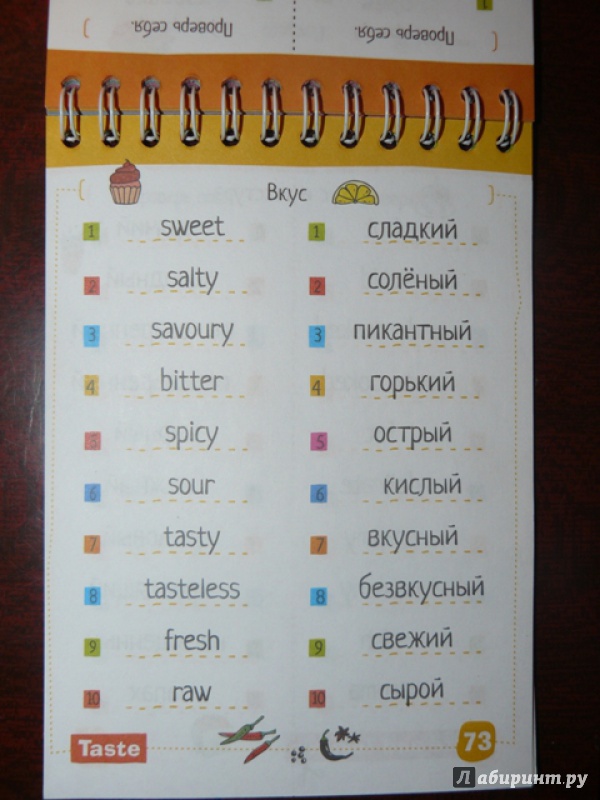 Проверь себя. Проверь себя.
1
Вкус
1 sweet 1 сладкий
2 salty 2 солёный
3 savoury 3 пикантный
4 bitter 4 горький
5 spicy 5 острый
6 sour 6 кислый
7 tasty 7 вкусный
8 tasteless 8 безвкусный
9 fresh 9 свежий
10 raw 10 сырой
Taste 73
Лабиринт.ру